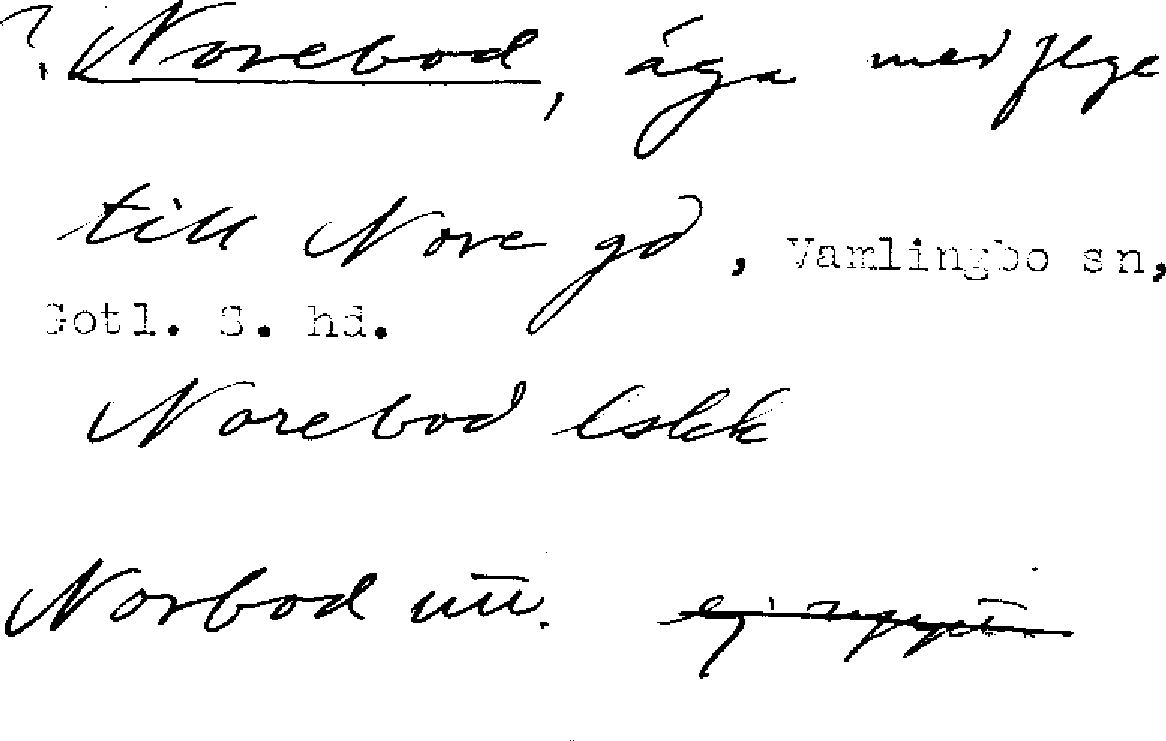 ? Norebod, äga med flge
till Nore gd, Vamlingbo sn,
Gotl. S. hd.
Norebod Eskk
Norbod utt. ej